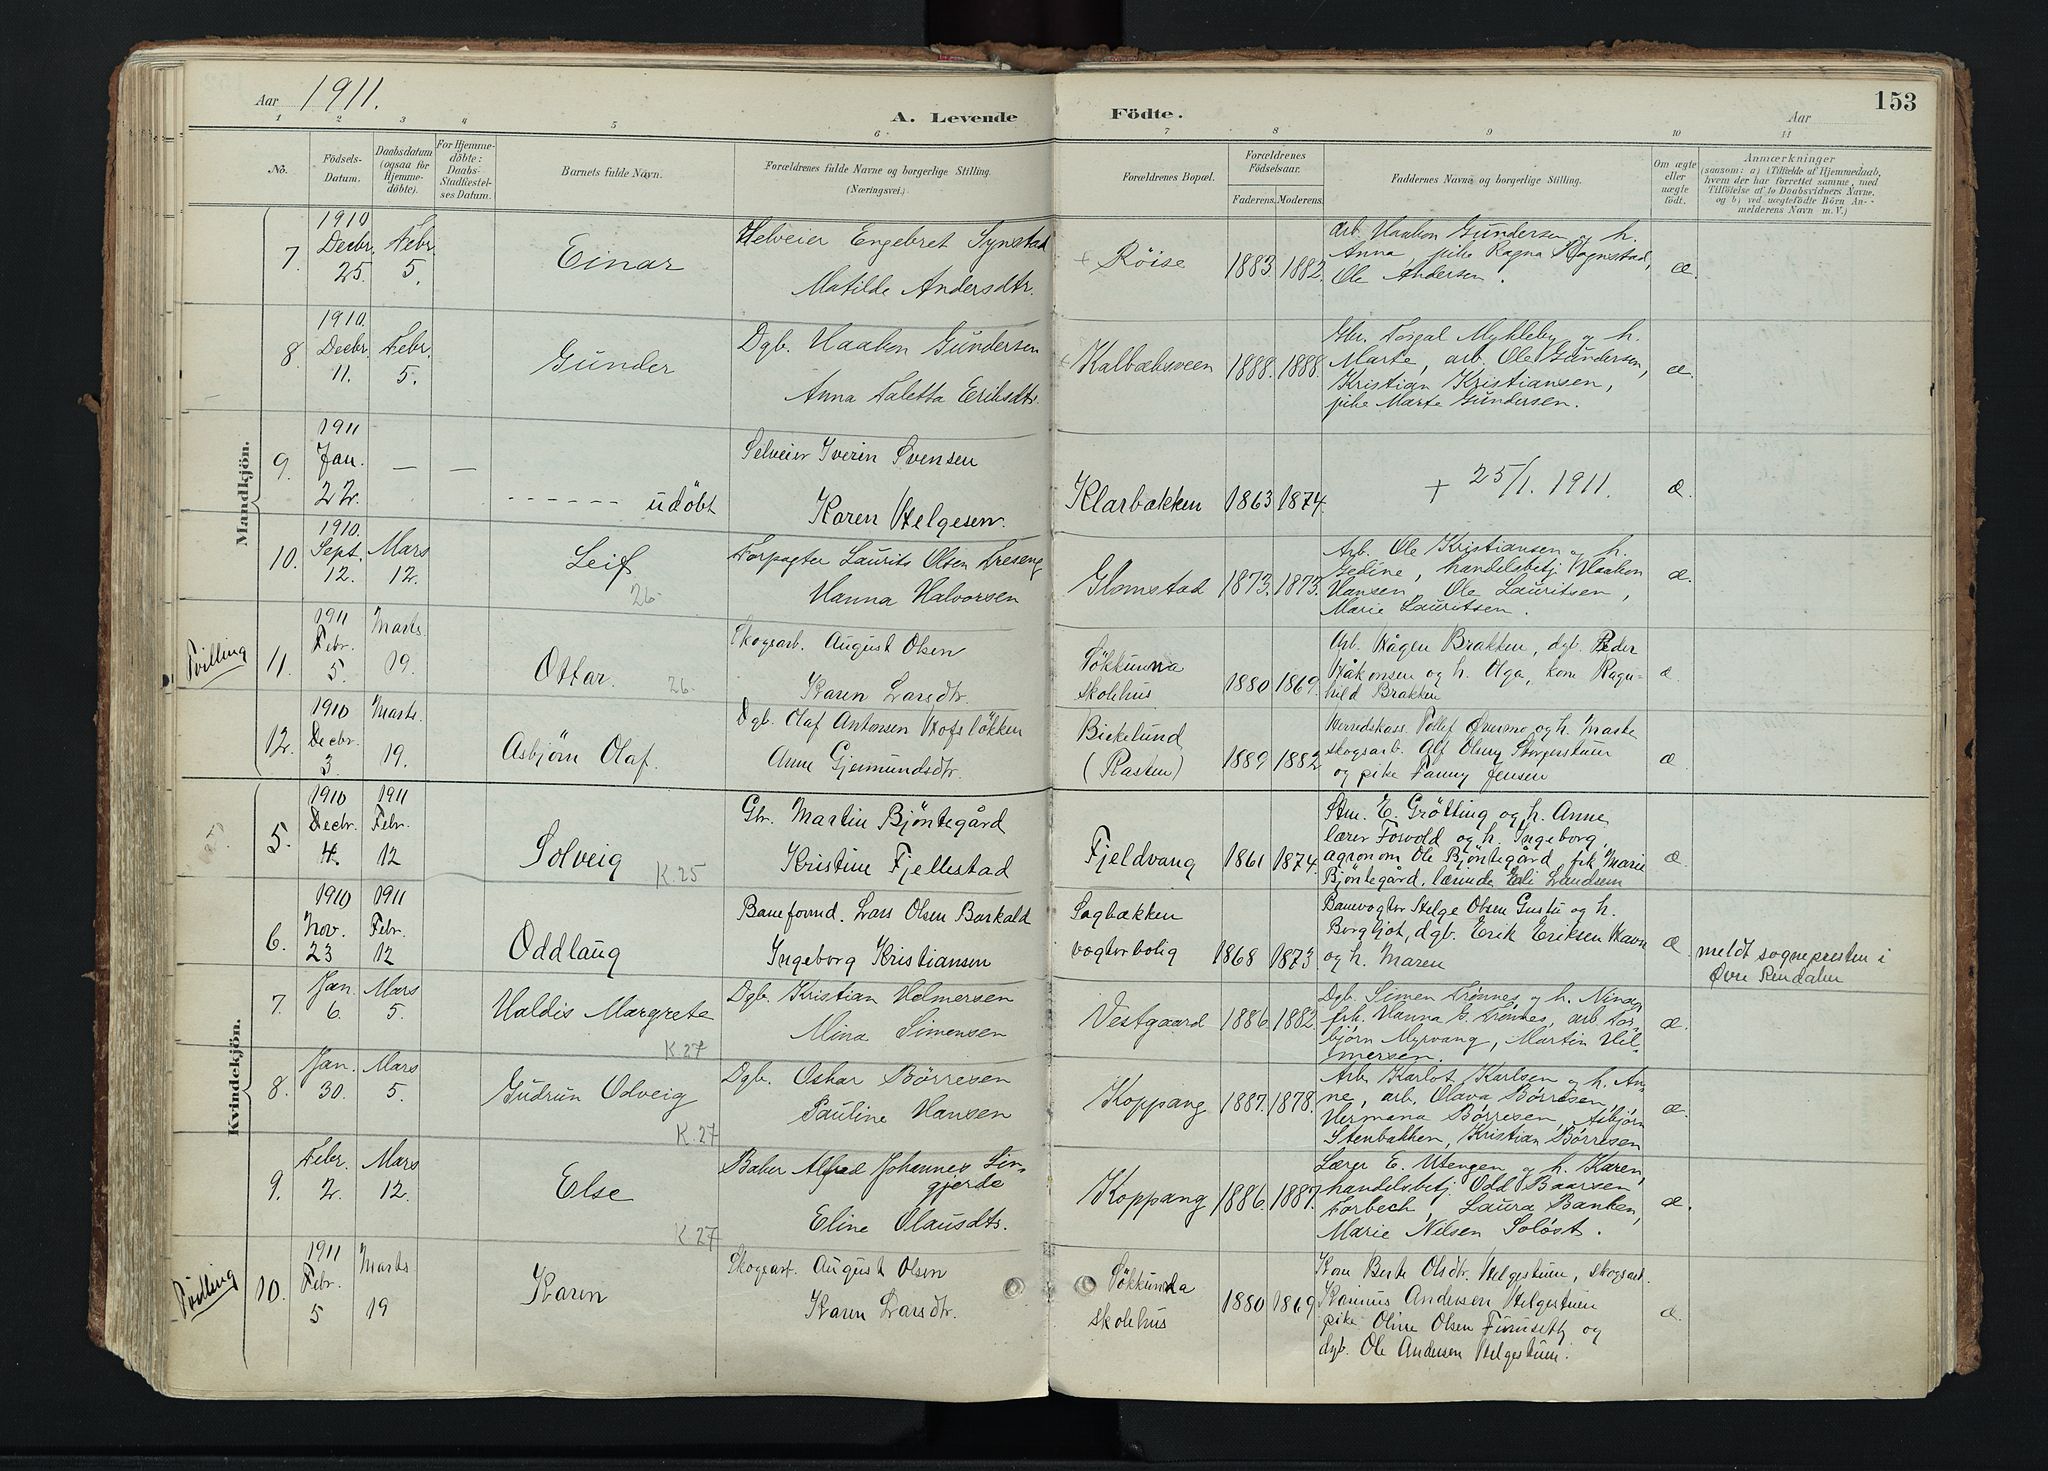 Aar 1911.
A. Levende
Födte.
Aar
153
1 2 3 4 5 6 7 8 9 10 11
No.
Födsels-
Datum.
Daabsdatum
(ogsaa for
Hjemme-
döbte).
For Hjemme-
döbte:
Daabs-
Stadfæstel-
ses Datum.
Barnets fulde Navn.
Forældrenes fulde Navne og borgerlige Stilling.
(Næringsvei.)
Forældrenes Bopæl.
Forældrenes
Födselsaar.
Faderens. Moderens.
Faddernes Navne og borgerlige Stilling.
Om ægte
eller
uægte
födt.
Anmærkninger
(saasom: a) i Tilfælde af Hjemmedaab,
hvem der har forrettet samme, med
Tilföielse af to Daabsvidners Navne,
og b) ved uægtefödte Börn An-
melderens Navn m. V.)
Mandkjön.
7.
1910
Decbr.
25.
Febr.
5.
Einar
Selveier Engebret Synstad
Matilde Andersdtr.
+ Röise
1883. 1882.
Arb. Haakon Gundersen og h.
Anna, pike Ragna Rognstad,
Ole Andersen.
æ.
8.
1910.
Decbr.
11.
Febr.
5.
Gunder
Dgb. Haakon Gundersen
Anna Valetta Eriksdtr.
Kalbæksveen
1888. 1888.
Gbr. Torgal Mykleby og h.
Marte, arb. Ole Gundersen,
Kristian Kristiansen,
pike Marte Gundersen.
æ.
9.
1911
Jan.
22.
— —
- - - - - - udöbt
Selveier Iverin Svensen
Karen Helgesen.
Klarbakken
1863 1874.
+ 25/1. 1911.
æ.
10.
1910.
Sept.
12.
Mars
12.
Leif
26.
Forpagter Laurits Olsen Treseng
Hanna Halvorsen
Glomstad
1873. 1873.
Arb. Ole Kristiansen og h.
Gedine, handelsbetj. Haakon
Hansen Ole Lauritsen,
Marie Lauritsen.
æ.
Tvilling
11.
1911
Febr.
5.
Marts.
19.
Ottar.
26.
Skogsarb. August Olsen
Karen Larsdtr.
Sökkunna
skolehus
1880 1869.
Arb. Hågen Brakken, dgb. Peder
Håkonsen og h. Olga, kone Ragn-
hild Brakken
æ.
12.
1910
Decbr.
3.
Marts.
19.
Asbjørn Olaf.
Dgb. Olaf Antonsen Hofsløkken
Anne Gjermundsdtr.
Birkelund
(Rasten)
1889 1882
Herredskass. Tollef Øvermo og h. Marte
skogsarb. Alf Olsen Storperstuen
og pike Fanny Jensen
æ
Kvindekjön.
5.
1910
Decbr.
4.
1911
Febr.
12
Solveig
K 25
Gbr. Martin Bjöntegård
Kristine Fjellestad
Fjeldvang
1861 1874.
Stm. E. Grötting og h. Anne
lærer Fosvold og h. Ingeborg,
agronom Ole Bjöntegård frk Marie
Bjöntegård, lærinde Eli Lundsem
æ
6.
1910
Nov.
23
1911
Febr.
12
Oddlaug
Baneformd. Lars Olsen Barkald
Ingeborg Kristiansen
Sagbakken
vogterbolig
1868 1873
Banevogter Helge Olsen Gustu og h.
Borgljot, dgb. Erik Eriksen Havn
og h. Maren
æ
meldt sognepresten i
Øvre Rendalen
7.
Jan.
6.
Mars
5.
Haldis Margrete
K.27
Dgb. Kristian Holmersen
Mina Simensen
Vestgaard
1886. 1882.
Dgb. Simen Trønnes og h. Nina,
frk. Hanna G. Trønnes, arb. Tor-
björn Myrvang, Martin Hil-
mersen.
æ.
8.
Jan.
30.
Mars
5.
Gudrun Solveig
K.27
Dgb. Oskar Börresen
Pauline Hansen
Koppang
1887. 1878.
Arb. Karlot Karlsen og h. An-
ne, arb. Olava Börresen,
Hermana Börresen, Asbjörn
Stenbakken, Kristian Börresen
æ.
9.
Febr.
2.
Mars
12.
Else
K.27
Baker Alfred Johannes Sin-
gjerde
Eline Olausdtr.
Koppang
1886. 1887.
Lærer E. Utengen og h. Karen,
handelsbetj. Odd Baarsen
Torbech, Laura Banken,
Marie Nilsen Soløst.
æ.
Tvilling
10.
1911
Febr.
5
Marts
19
Karen
Skogsarb. August Olsen
Karen Larsdtr.
Søkkunna
skolehus
1880 1869
Kone Berte Olsdtr. Helgestuen, skogsarb.
Rasmus Andersen Helgestuen
pike Oline Olsen Furuseth og
dgb. Ole Andersen Helgestuen.
æ.